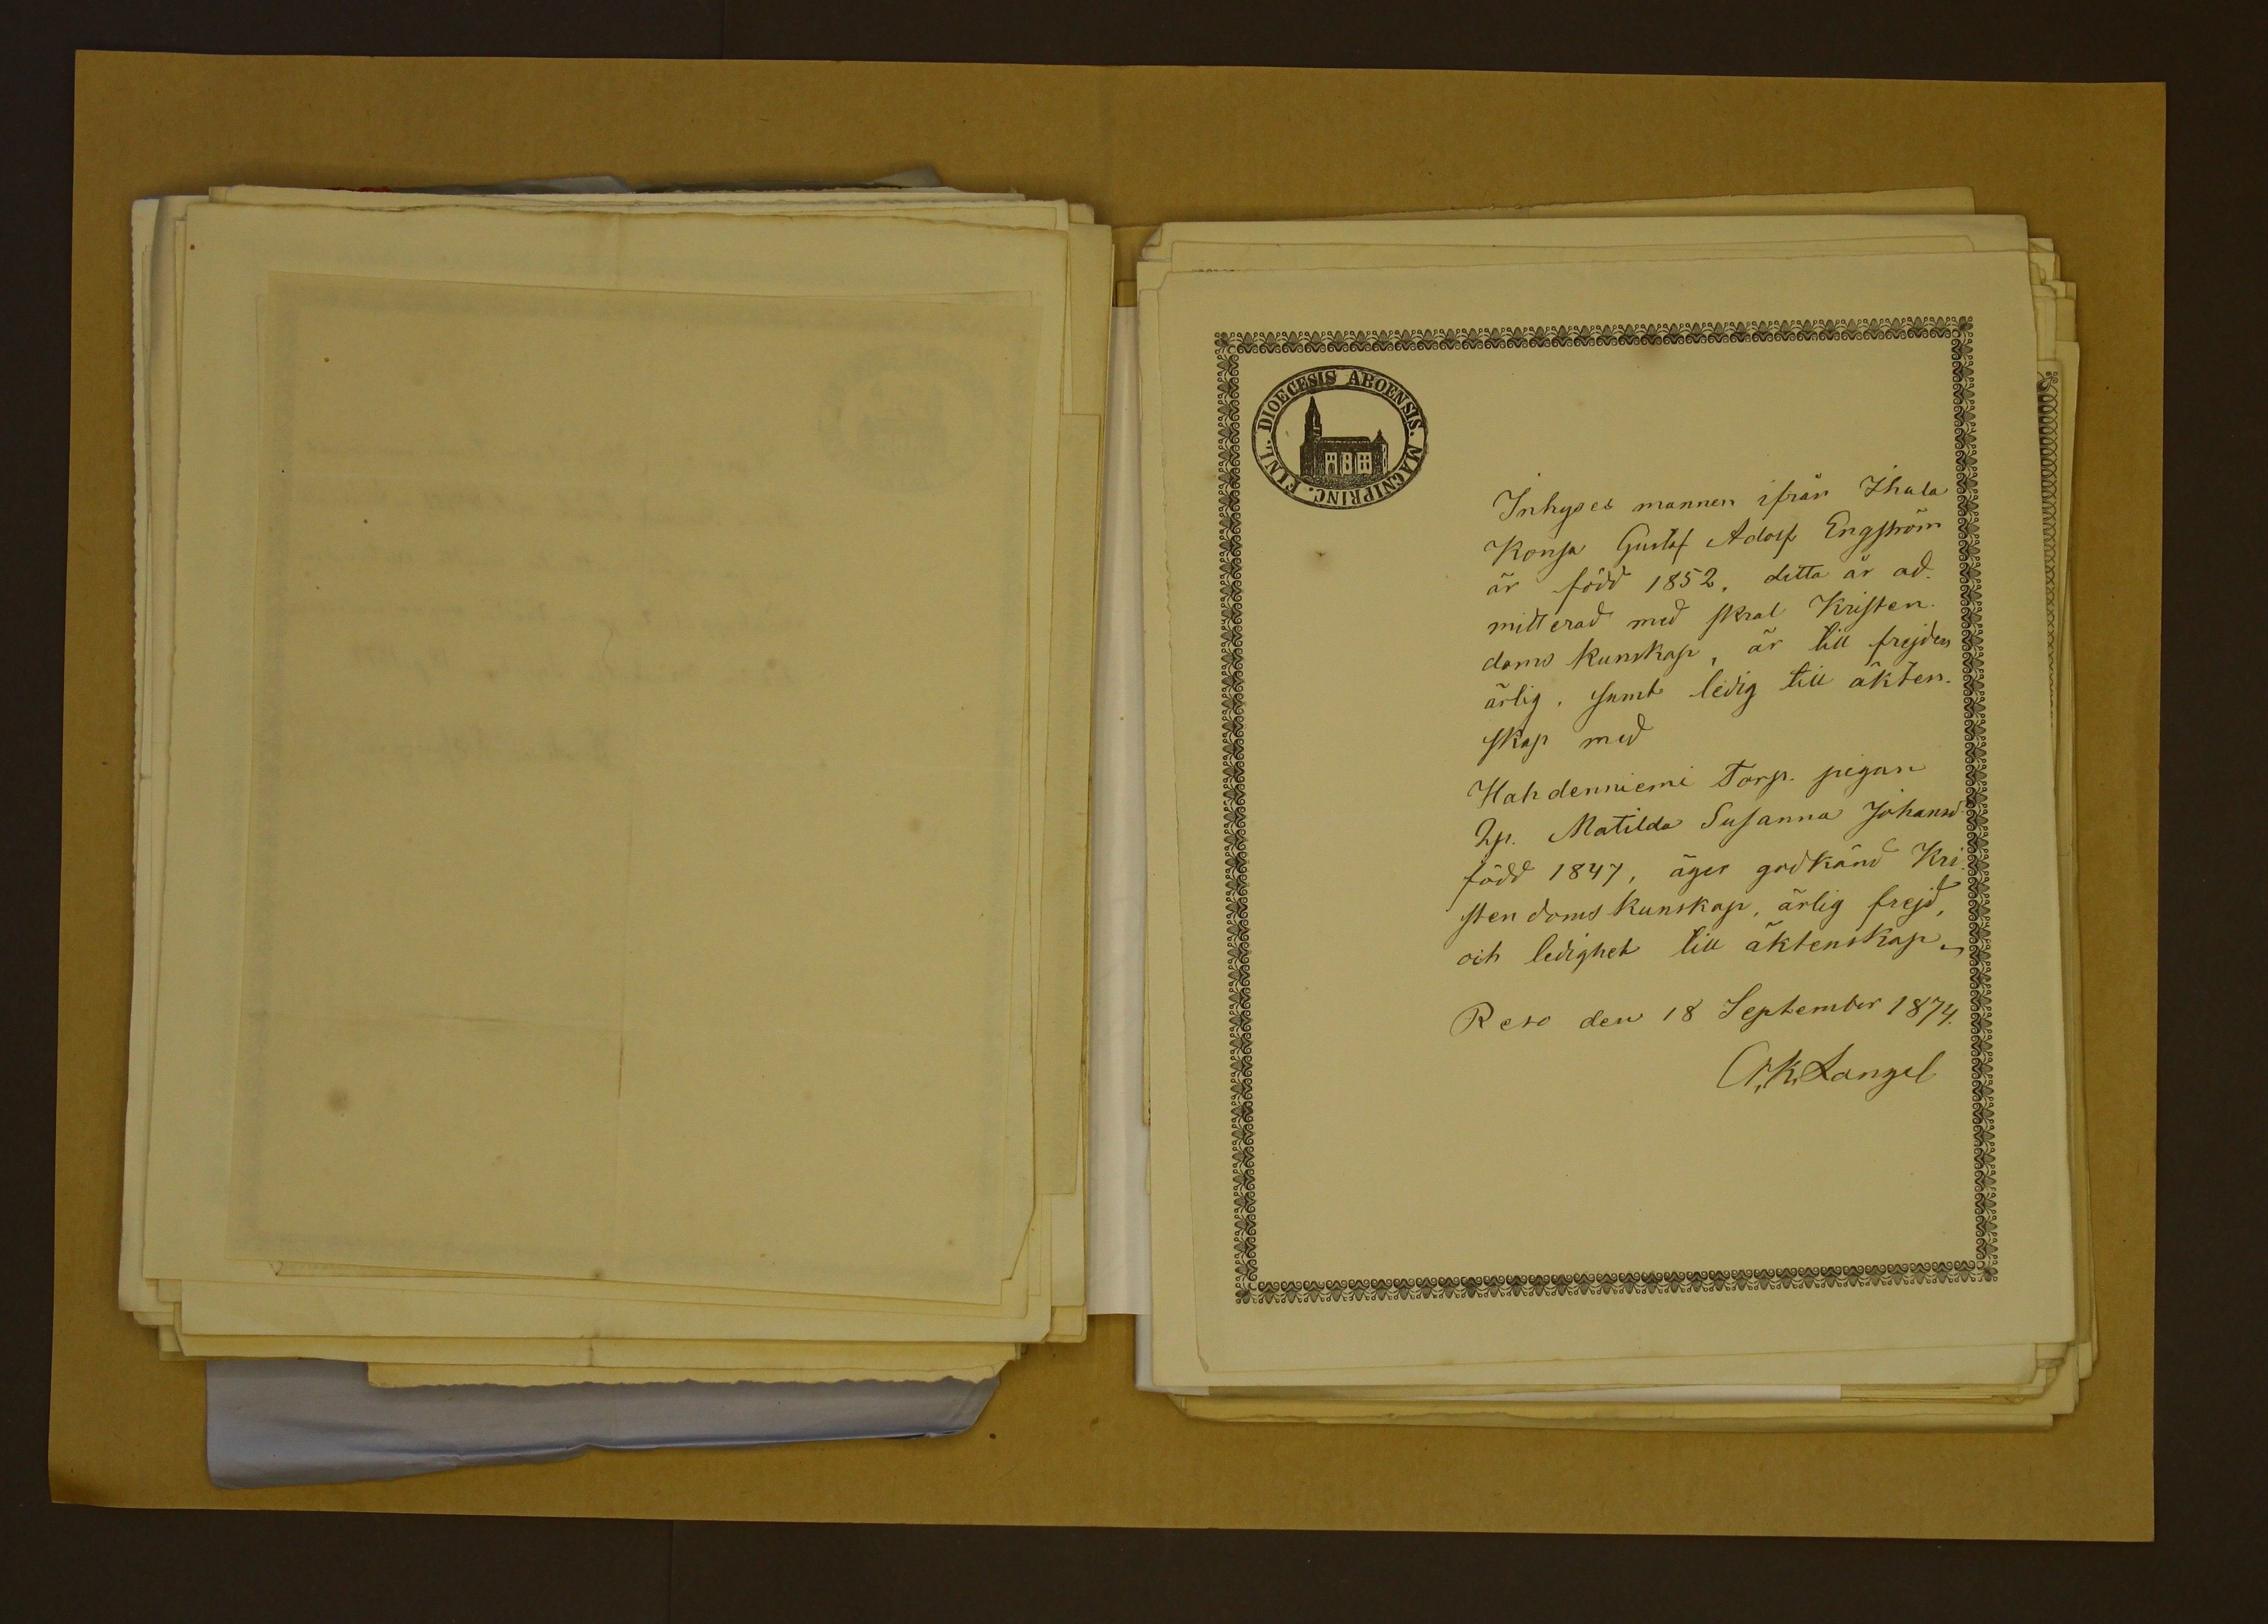 DIOECESIS ABOENSIS. MAGNIPRINC. FINL.
Inhyses mannen ifrån Ihala
Konsa Gustaf Adolf Engström
är född 1852, ditto är ad-
mitterad med skral Kristen-
doms kunskap, är till frejden
ärlig, samt ledig till äkten-
skap med
Hahdenniemi Torp. pigan
Matilda Susanna Johansd.
född 1847, äger godkänd Kri-
stendoms kunskap, ärlig frejd,
och ledighet till äktenskap,
Reso den 18 September 1874.
K. Langel